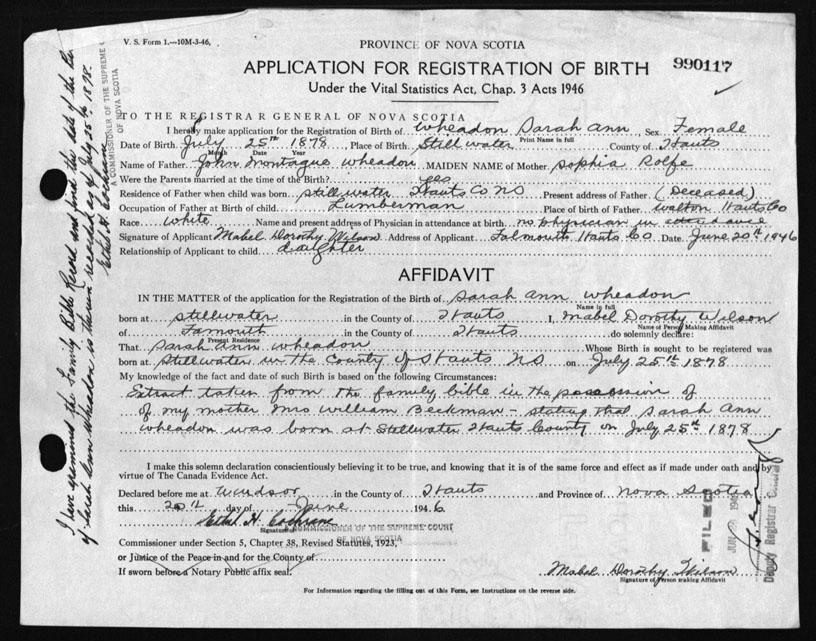 V. S. Form 1.—10M-3-46,
PROVINCE OF NOVA SCOTIA
APPLICATION FOR REGISTRATION OF BIRTH
990117
Under the Vital Statistics Act, Chap. 3 Acts 1946
TO THE REGISTRAR GENERAL OF NOVA SCOTIA
I hereby make application for the Registration of Birth of Wheadon Sarah Ann, Sex Female
Print Name in full
Date of Birth July 25th 1878, Place of Birth Stillwater County of Hants
Month Date Year
Name of Father John Montague Wheadon MAIDEN NAME of Mother Sophia Rolfe
Were the Parents married at the time of the Birth? yes
Residence of Father when child was born Stillwater Hants Co NS Present address of Father (Deceased)
Occupation of Father at Birth of child Lumberman Place of Birth of Father Walton Hants Co
Race White Name and present address of Physician in attendance at birth no physician in attendance
Signature of Applicant Mabel Dorothy Wilson Address of Applicant Falmouth Hants Co Date June 20th 1946
Relationship of Applicant to child daughter
AFFIDAVIT
IN THE MATTER of the application for the Registration of the Birth of Sarah Ann Wheadon
Name in full
born at Stillwater in the County of Hants I, Mabel Dorothy Wilson
Name of Person Making Affidavit
of Famouth in the County of Hants do solemnly declare:
Present Residence
That Sarah Ann Wheadon Whose Birth is sought to be registered was
born at Stillwater in the County of Hants NS on July 25th 1878
My knowledge of the fact and date of such Birth is based on the following Circumstances:
Extract taken from the family bible in the possession of
of my mother Mrs William Beckman - stating that Sarah Ann
Wheadon was born at Stillwater Hants County on July 25th 1878
I make this solemn declaration conscientiously believing it to be true, and knowing that it is of the same force and effect as if made under oath and by
virtue of The Canada Evidence Act.
Declared before me at Windsor in the County of Hants and Province of Nova Scotia
this 20th day of June 1946
Ethel H. Cochrane
Signature
A COMMISSIONER OF THE SUPREME COURT
OF NOVA SCOTIA
Commissioner under Section 5, Chapter 38, Revised Statutes, 1923,
or Justice of the Peace in and for the County of
If sworn before a Notary Public affix seal.
Mabel Dorothy Wilson
Signature of Person making Affidavit
For Information regarding the filling out of this Form, see Instructions on the reverse side.
I have examined the Family Bible Record and find the date of the birth
of Sarah Ann Wheadon is therein recorded as of July 25th 1878.
Ethel H. Cochrane
A COMMISSIONER OF THE SUPREME
OF NOVA SCOTIA
FILED
JUN 1946
Deputy Registrar General